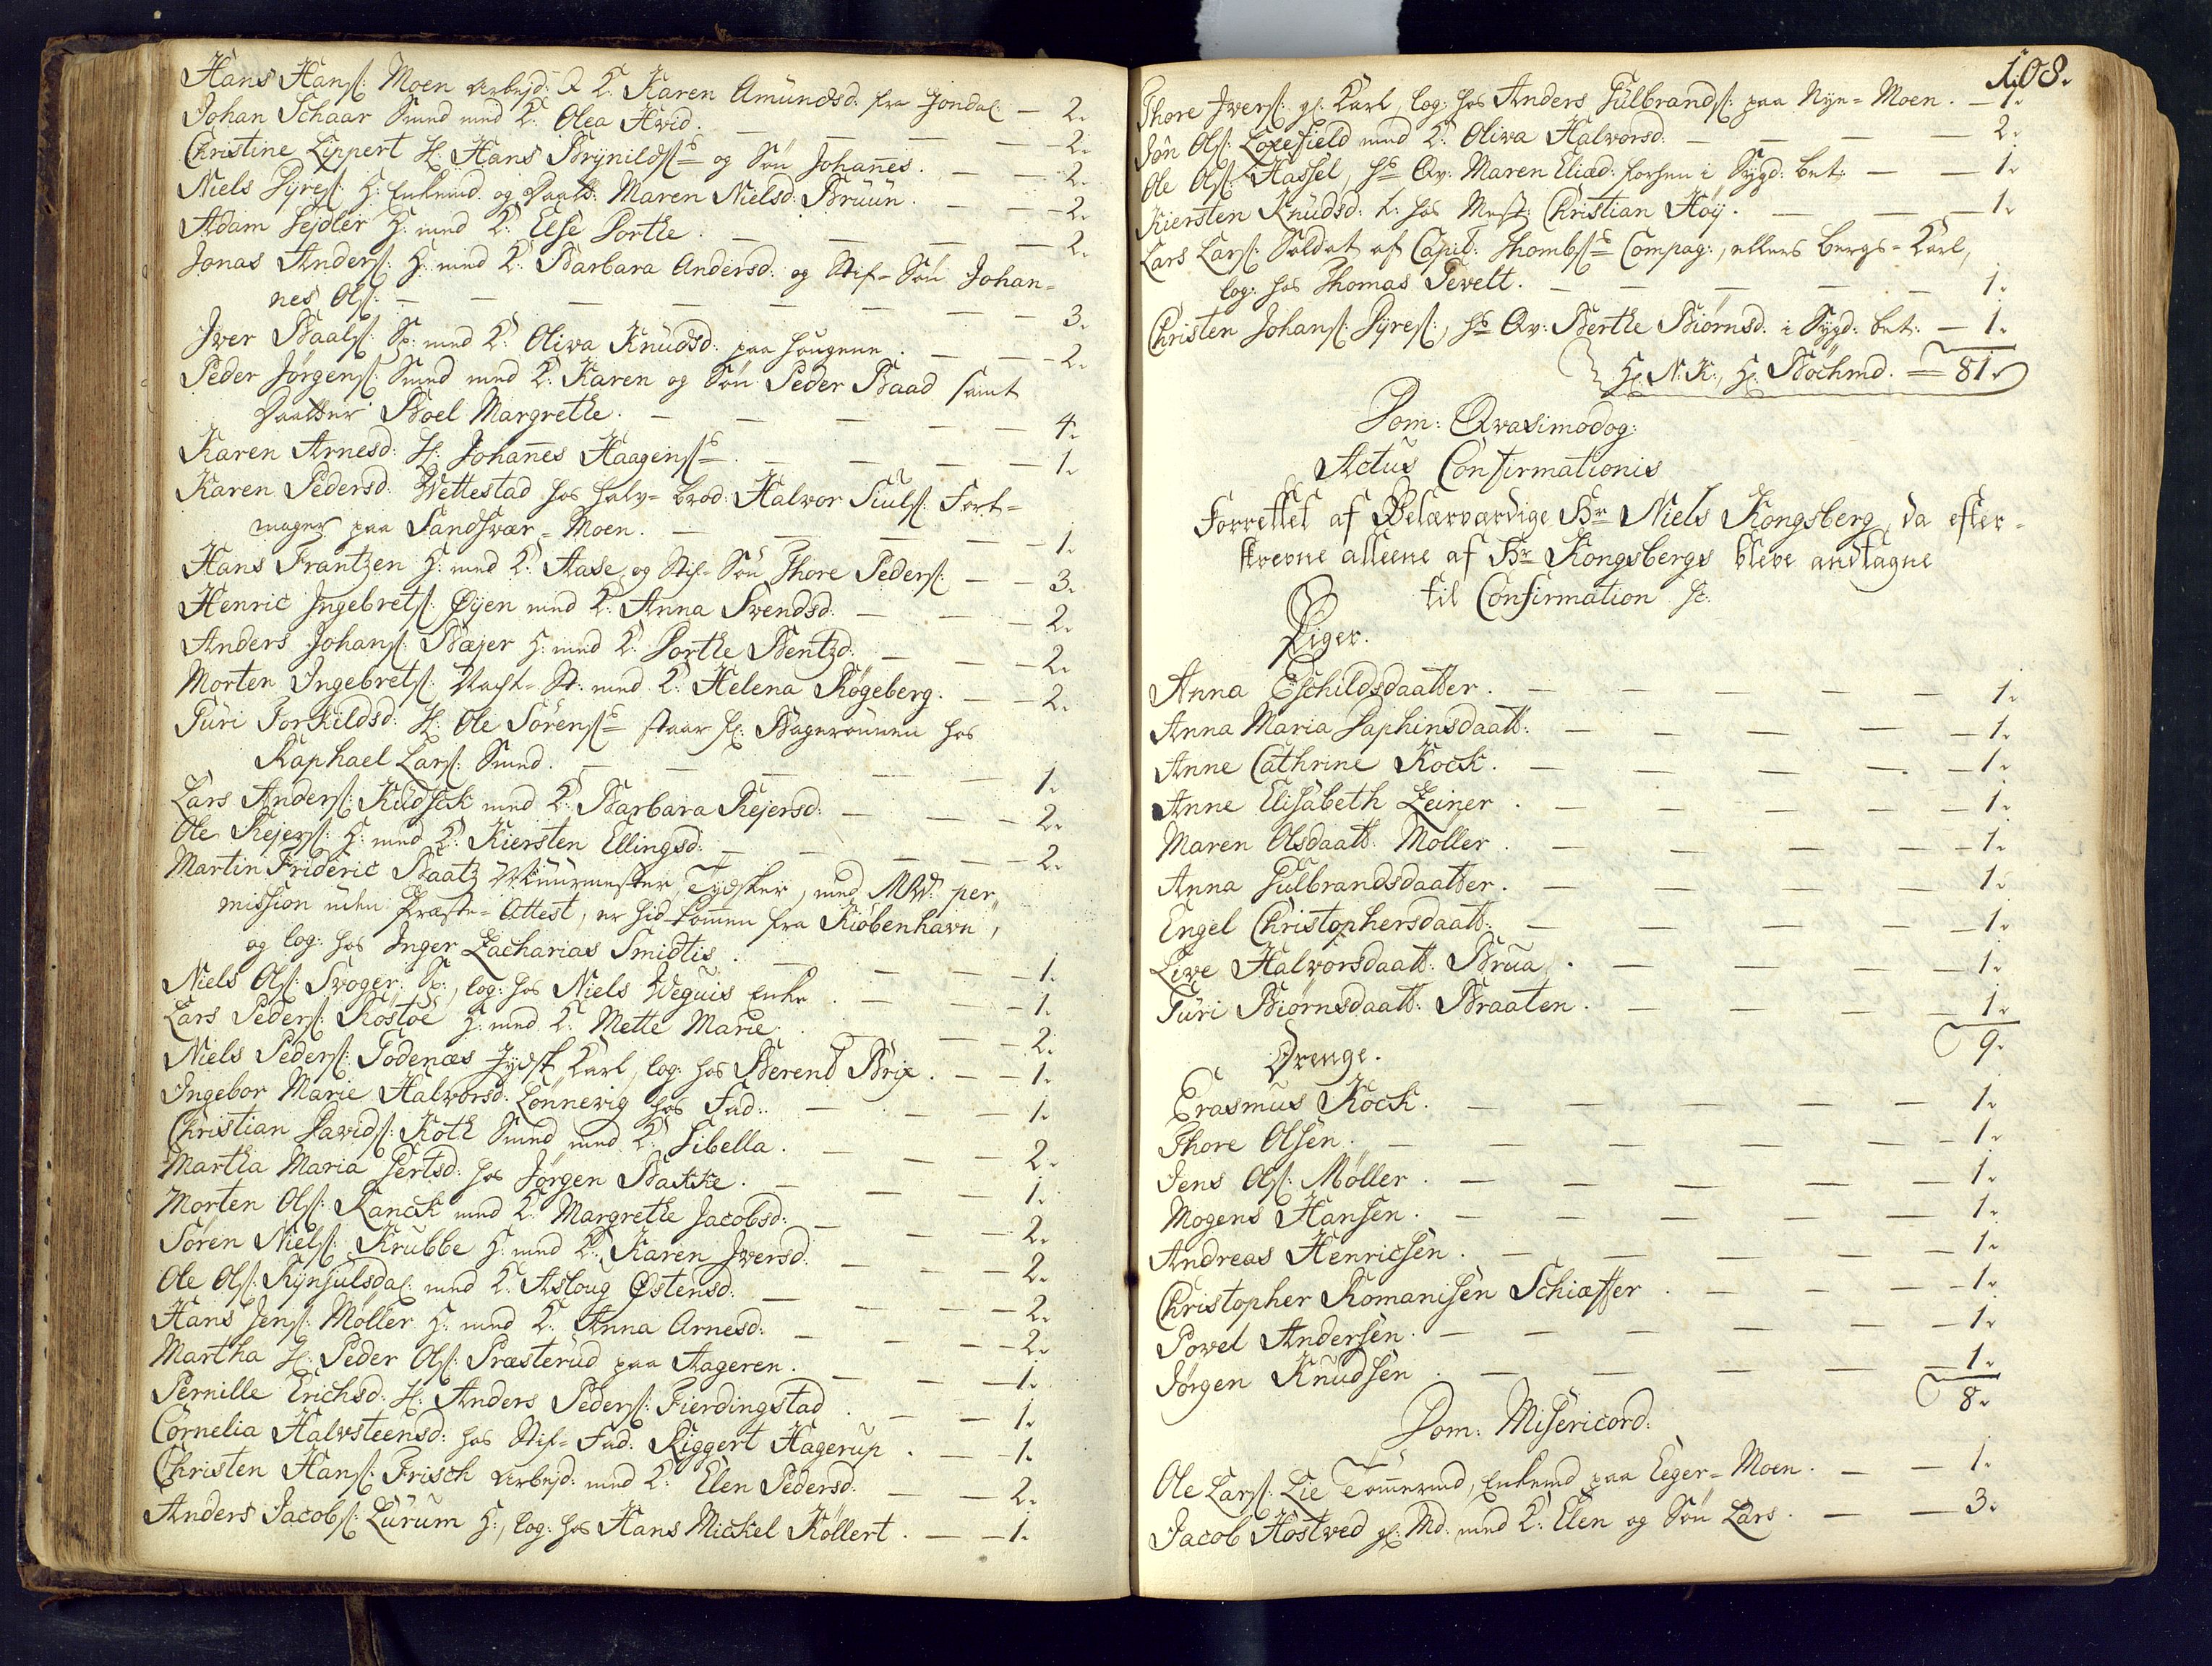 Hans Hans: Moen Arbejd: K: Karen Amundsd: fra Jondal — 2.
Johan Schaar Smed med K: Olea Hvid. — 2.
Christine Lippert H: Hans Brynilds: og Søn Johanes. — 2.
Niels Dyres: H: Enkemd og Daatt: Maren Nielsd: Bruun. — 2.
Adam Sejdler H: med K: Else Dorthe. — 2.
Jonas Anders: H: med K: Barbara Andersd: og Stif-Søn Johan-
nes Ols: — 3.
Iver Baals: Sp: med K: Oliva Knudsd: paa Haugene. — 2.
Peder Jørgens: Smed med K: Karen og Søn Peder Baad samt
Daatter Boel Margrethe. — 4.
Karen Arnesd: H: Johanes Haagens: — 1.
Karen Pedersd: Wettestad hos Halv-Brod: Halvor Siuls: Fort-
mager paa Sandsvær-Moen. — 1.
Hans Frantzen H: med K: Aase og Stif-Søn Thore Peders: — 3.
Henric Ingebrets: Øyen med K: Anna Svendsd: — 2.
Anders Johans: Bæjer H: med K: Dorthe Bentzd: — 2.
Morten Ingebrets: Vagt-St: med K: Helena Røgeberg. — 2.
Turi Torkildsd: H: Ole Sørens: staar hos
Raphael Lars: Smed. — 1.
Lars Anders: Kudsck med K: Barbara Rejersd: — 2.
Ole Rejers: H: med K: Kiersten Ellingsd: — 2.
Martin Frideric Baatz Muurmester, Tydsker, med MW: per„
mission uden Præste-Attest, er hid komen fra Kiøbenhavn,
og log: hos Inger Zacharias Smidtis. — 1.
Niels Ols: Svoger Sp:, log: hos Niels Weguis Enke. — 1.
Lars Peders: Rostoe H: med K: Mette Marie. — 2.
Niels Peders: Todenæs Jydsk Karl, log: hos Berend Brix. — 1.
Ingebor Marie Halvorsd: Lønnevig hos Fad: — 1.
Christian Davids: Koth Smed med K: Sibella. — 2.
Martha Maria Gertsd: hos Jørgen Bakke. — 1.
Morten Ols: Ranck med K: Margrethe Jacobsd: — 2.
Søren Niels: Krubbe H: med K: Karen Iversd: — 2.
Ole Ols: Rynsulsdal: med K: Asloug Østensd: — 2.
Hans Jens: Møller H: med K: Anna Arnesd: — 2.
Martha H: Peder Ols: Præsterud paa Aageren. — 1.
Pernille Erichsd: H: Anders Peders: Fierdingstad. — 1.
Cornelia Halvsteensd: hos Stif-Fad: Riggert Hagerup. — 1.
Christen Hans: Frisch Arbejd: med K: Elen Pedersd: — 2.
Anders Jacobs: Lurum H:, log: hos Hans Mickel Køllert. — 1.
108.
Thore Ivers: gl: Karl, log: hos Anders Gulbrands: paa Nye-Moen. — 1.
Jøn Ols: Loxefield med K: Oliva Halvorsd: — 2.
Ole Ols: Hassel, hs Qv: Maren Eliæd: Forsen i Sygd: bet: — 1.
Kiersten Knudsd: t: hos Mest: Christian Høy. — 1.
Lars Lars: Soldat af Capit: Thombs: Compag:, ellers Bergs-Karl,
log: hos Thomas Gevelt. — 1.
Christen Johans: Dyres:, hs Qv: Berthe Biørnsd: i Sygd: bet: — 1.
H: N. K., H: Bøchmd. — 81.
Dom: Qvasimodog:
Actus Confirmationis
Forrettet af Velærværdige Hr Niels Kongsberg, da efter-
skrevne alleene af Hr Kongsbergs bleve andtagne
til Confirmation sc:
Piger.
Anna Eschildsdaatter. — 1.
Anna Maria Daphinsdaatt: — 1.
Anne Cathrine Kock. — 1.
Anne Elisabeth Zeiner. — 1.
Maren Olsdaatt: Møller. — 1.
Anna Gulbrandsdaatter. — 1.
Engel Christophersdaatt: — 1.
Live Halvorsdaatt: Brua. — 1.
Turi Biørnsdaatt: Braaten. — 1.
9.
Drenge.
Erasmus Kock. — 1.
Thore Olsen. — 1.
Jens Ols: Møller. — 1.
Mogens Hansen. — 1.
Andreas Henricsen. — 1.
Christopher Romanisen Schiæffer. — 1.
Povel Andersen. — 1.
Jørgen Knudsen. — 1.
8.
Dom: Misericord:
Ole Lars: Lie Tømermd, Enkemd paa Eeger-Moen. — 1.
Jacob Hostved gl: Md: med K: Elen og Søn Lars. — 3.